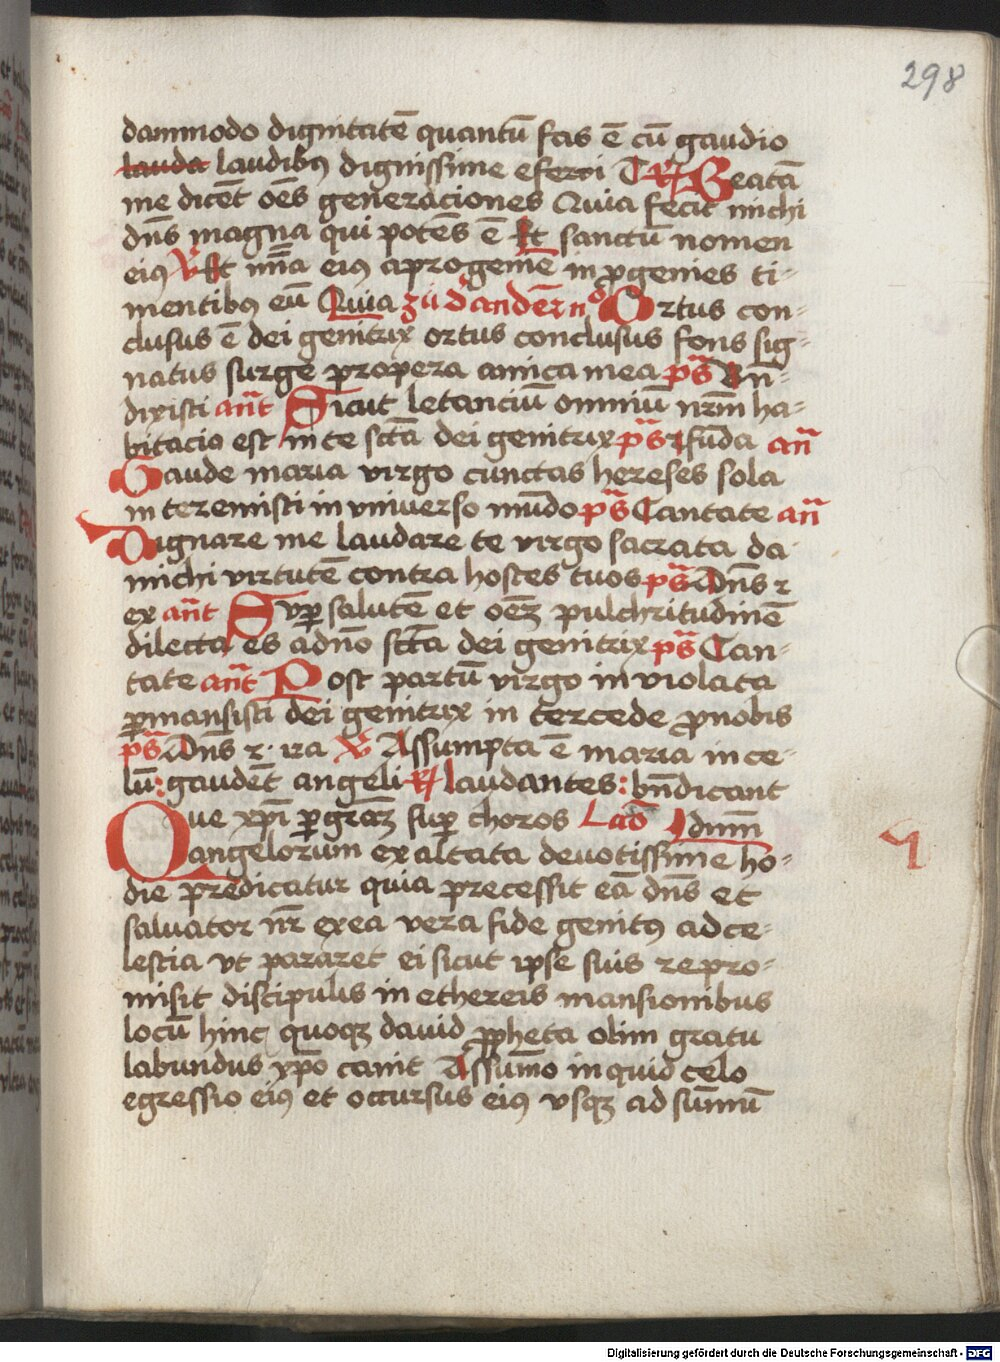 298
dammodo dignitatē quantū fas ē cū gaudio
lauda laudibꝯ dignissime efferri R̷ Beatā
me dicēt oēs generaciones Quia fecit michi
dn̄s magna qui potēs ē Et sanctū nomen
eiꝯ V̷ Et mīa eiꝯ aprogenie in ꝓgenies ti-
mentibꝯ eū Quia zů d' andern no Ortus con-
clusus ē dei genitrix ortus conclusus fons sig-
natus surge propera amica mea ps̄ Dn̄-
dixisti an̄t Sicut letanciū omniū nr̄m ha-
bitacio est in te sctā dei genitrix ps̄ fūda an̄
Gaude maria virgo cunctas hereses sola
in teremisti in vniuerso mūdo ps̄ Cantate an̄
Dignare me laudare te virgo sacrata da
michi virtutē contra hostes tuos ps̄ Dn̄s r
ex an̄t Suꝑ salutē et oēꝫ pulchritudinē
dilecta es adn̄o sctā dei genitrix ps̄ Can-
tate an̄t Post partū virgo in violata
ꝑmansisti dei genitrix in tercede ꝓnobis
ps̄ Dn̄s r. ira V̷ Assumpta ē maria in ce-
lū: gaudēt angeli R̷ laudantes: bn̄dicant
Que xp̄i ꝑ gr̄aꝫ suꝑ choros Lad' Ad nīm
angelorum ex altata deuotissime ho-
die predicatur quia precessit eā dn̄s et
saluator nr̄ exea vera fide genitꝯ ad ce-
lestia vt pararet ei sicut ipse suis repro-
misit discipulis in ethereis mansionibus
locū hinc quoqꝫ dauid ꝓpheta olim gratu
labundus xp̄o canit A ssūmo in quid celo
egressio eiꝯ et occursus eiꝯ vsqꝫ ad sūmū
Digitalisierung gefördert durch die Deutsche Forschungsgemeinschaft - DFG